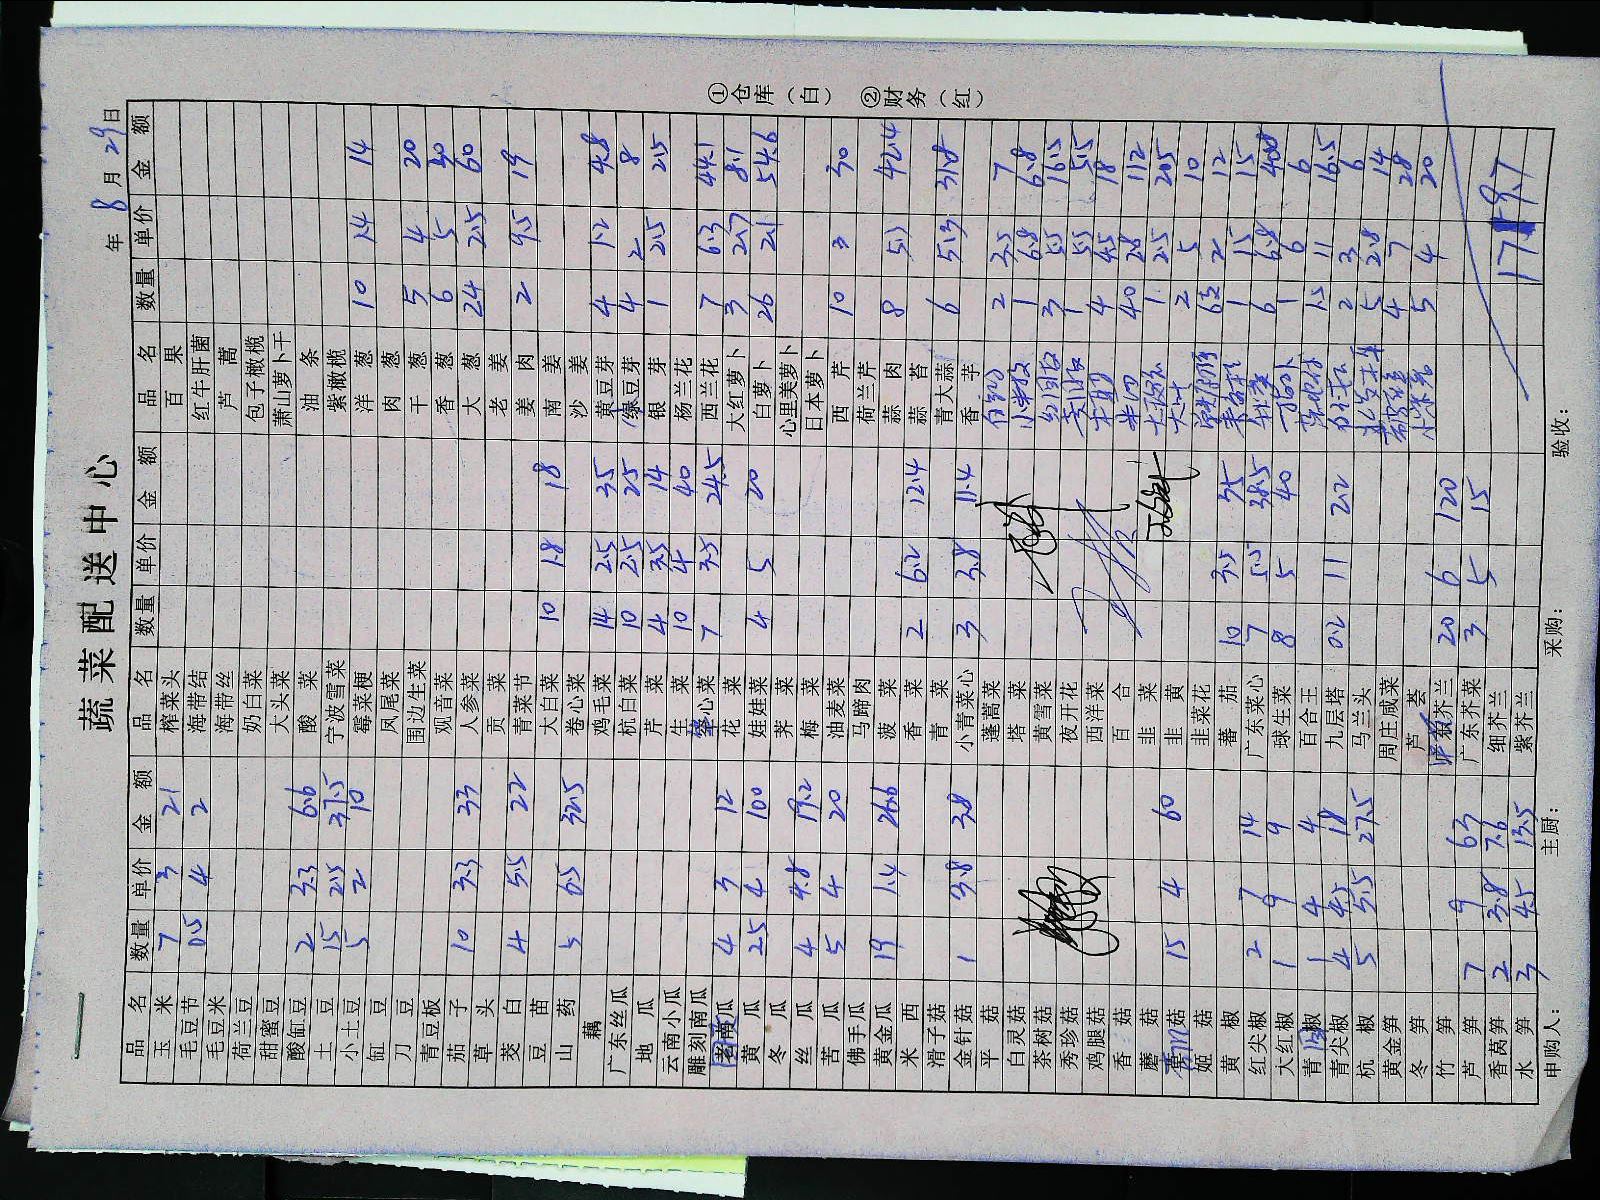 蔬菜配送中心
年 8 月 29 日
品名 数量 单价 金额 品名 数量 单价 金额 品名 数量 单价 金额
玉米 7 3 21 榨菜头 百果
毛豆节 0.5 4 2 海带结 红牛肝菌
毛豆米 海带丝 芦蒿
荷兰豆 奶白菜 包子橄榄
甜蜜豆 大头菜 萧山萝卜干
酸缸豆 2 3.3 6.6 酸菜 油条
土豆 15 2.5 37.5 宁波雪菜 紫橄榄
小土豆 5 2 10 霉菜梗 洋葱 10 1.4 14
缸豆 凤尾菜 肉葱
刀豆 围边生菜 干葱 5 4 20
青豆板 观音菜 香葱 6 5 30
茄子 10 3.3 33 人参菜 大葱 24 2.5 60
草头 贡菜 老姜
茭白 4 5.5 22 青菜节 姜肉 2 9.5 19
豆苗 大白菜 10 1.8 18 南姜
山药 5 6.5 32.5 卷心菜 沙姜
藕 鸡毛菜 14 2.5 35 黄豆芽 4 1.2 4.8
广东丝瓜 杭白菜 10 2.5 25 绿豆芽 4 2 8
地瓜 芹菜 4 3.5 14 银芽 1 2.5 2.5
云南小瓜 生菜 10 4 40 杨兰花
雕刻南瓜 心菜 7 3.5 24.5 西兰花 7 6.3 44.1
南瓜 4 3 12 花菜 大红萝卜 3 2.7 8.1
黄瓜 25 4 100 娃娃菜 4 5 20 白萝卜 26 2.1 54.6
冬瓜 荠菜 心里美萝卜
丝瓜 4 4.8 19.2 梅菜 日本萝卜
苦瓜 5 4 20 油麦菜 西芹 10 3 30
佛手瓜 马蹄肉 荷兰芹
黄金瓜 19 1.4 26.6 菠菜 蒜肉 8 5.3 42.4
米西 香菜 2 6.2 12.4 蒜苔
滑子菇 青菜 青大蒜 6 5.3 31.8
金针菇 1 3.8 3.8 小青菜心 3 3.8 11.4 香芋
平菇 蓬蒿菜 2 3.5 7
白灵菇 塔菜 1 6.8 6.8
茶树菇 黄雪菜 3 5.5 16.5
秀珍菇 夜开花 1 5.5 5.5
鸡腿菇 西洋菜 4 4.5 18
香菇 百合 40 2.8 112
蘑菇 韭菜 1 2.5
菇 15 4 60 韭黄 2 5 10
姬菇 韭菜花 2 12
黄椒 番茄 10 3.5 35 1 15 15
红尖椒 2 7 14 广东菜心 7 5.5 38.5 6 6.8 40.8
大红椒 1 9 9 球生菜 8 5 40 1 6 6
青椒 1 4 4 百合王 1.5 11 16.5
青尖椒 4 4.5 18 九层塔 0.2 11 2.2 2 3 6
杭椒 5 5.5 27.5 马兰头 5 2.8 14
黄金笋 周庄咸菜 4 7 28
冬笋 芦荟 5 4 20
竹笋 芥兰 20 6 120
芦笋 7 9 63 广东芥菜 3 5 15
香莴笋 2 3.8 7.6 细芥兰
水笋 3 4.5 13.5 紫芥兰
申购人： 主厨： 采购： 验收：
①仓库（白） ②财务（红）